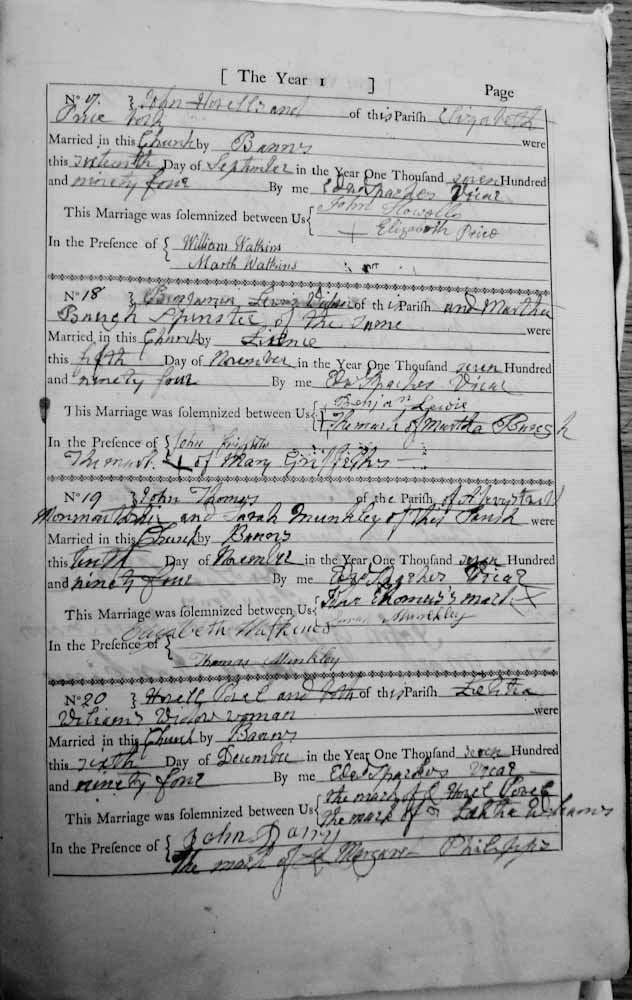 [ The Year 1 ] Page
No 17. } John Howells and of this Parish Elizabeth
Price both were
Married in this Church by Banns
this sixteenth Day of September in the Year One Thousand seven Hundred
and ninety four By me Edwd Sparkes Vicar
This Marriage was solemnized between Us { John Howells
+ Elizabeth Price
In the Presence of { William Watkins
Marth Watkins
No 18 } Benjamin Lewis of this Parish and Martha
Baugh Spinster of the same were
Married in this Church by Licence
this fifth Day of November in the Year One Thousand seven Hundred
and ninety four By me Edw Sparkes Vicar
This Marriage was solemnized between Us { Benjan Lewis
+ The mark of Martha Baugh
In the Presence of { John Griffiths
The mark + of Mary Griffiths
No 19 } John Thomas of the Parish of
and Sarah Munkley of this Parish were
Married in this Church by Banns
this tenth Day of November in the Year One Thousand seven Hundred
and ninety four By me Edwd Sparkes Vicar
This Marriage was solemnized between Us { Thomas's mark X
Sarah Munkley
Elizabeth Watkins
In the Presence of {
Thomas Munkley
No 20 } Howell Powel and both of this Parish Letitia
Williams Widow woman were
Married in this Church by Banns
this sixth Day of Decembr in the Year One Thousand seven Hundred
and ninety four By me Edwd Sparkes Vicar
This Marriage was solemnized between Us { the mark of Howel Powel
the mark of Williams
In the Presence of { John Parry
the mark of Margaret Philipps